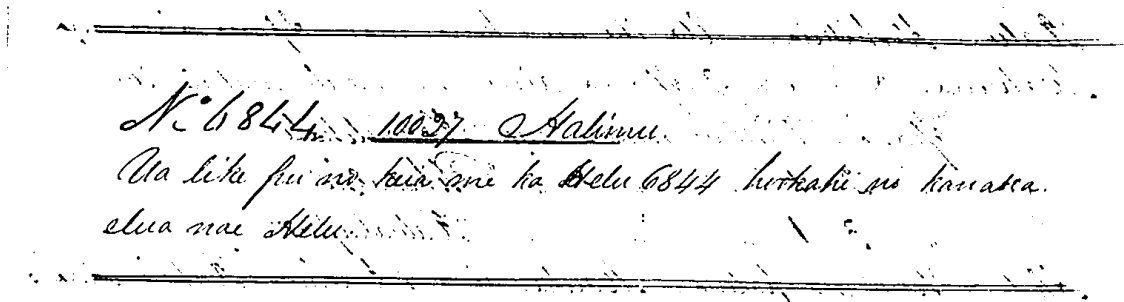 No 6844 10037 Halimu
Ua like pu no keia me ka Helu 6844 hookahi no kanaka
elua nae Helu.